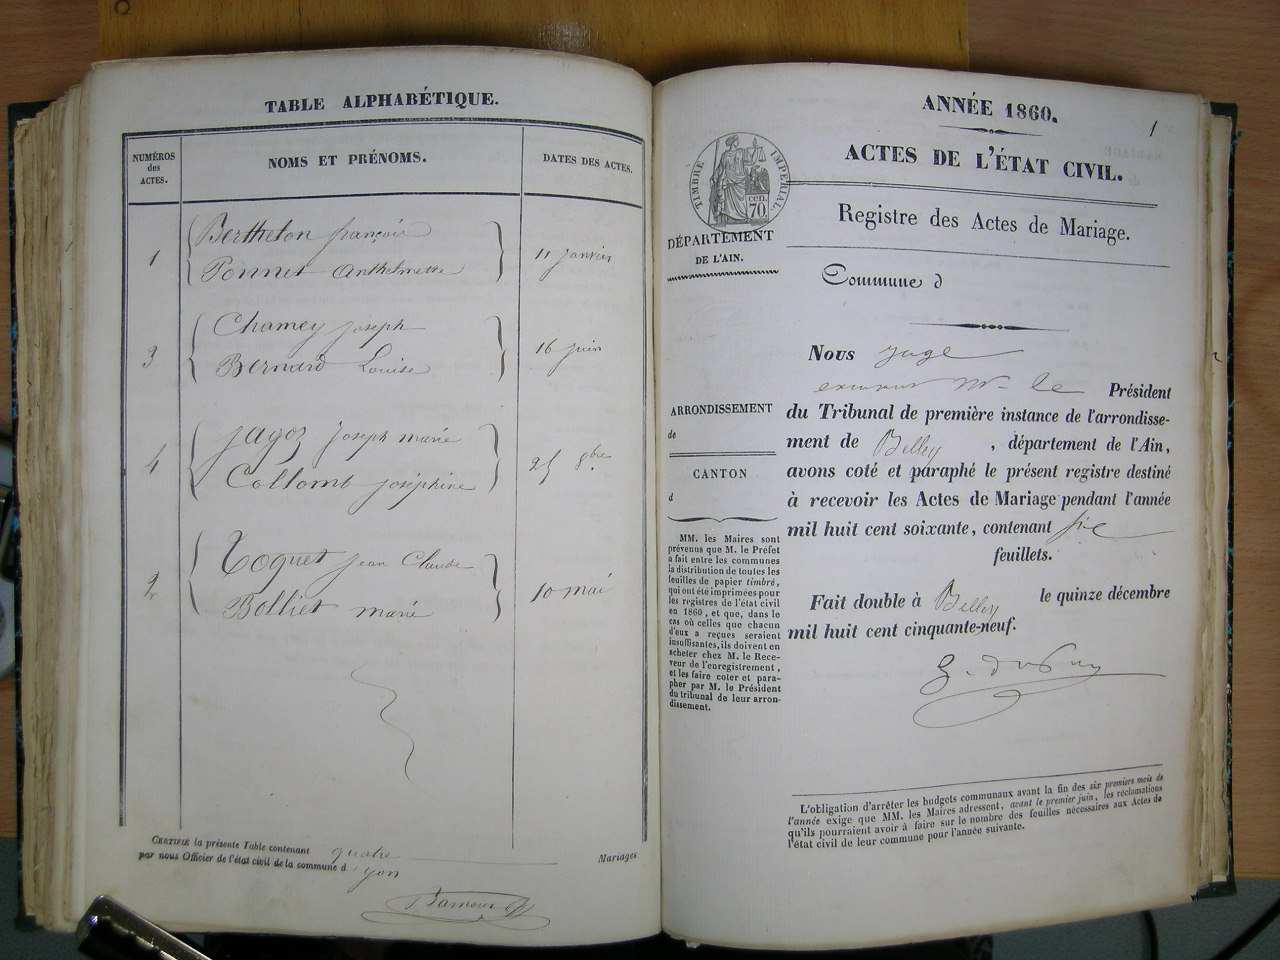 TABLE ALPHABÉTIQUE.
NUMÉROS
des
ACTES.
NOMS ET PRÉNOMS.
DATES DES ACTES.
1
Berthelon françois
Ponnet Anthelmette
11 janvier
3
Chamey joseph
Bernard Louise
16 juin
4
Jagoz joseph marie
Collomb joséphine
25 8bre
2
Toquet jean Claude
Bolliet marie
10 mai
CERTIFIÉ la présente Table contenant quatre Mariages
par nous Officier de l'état civil de la commune d'yon
1
ANNÉE 1860.
ACTES DE L'ÉTAT CIVIL.
TIMBRE IMPÉRIAL.
CEN.
70
Registre des Actes de Mariage.
DÉPARTEMENT
DE L'AIN.
Commune d
ARRONDISSEMENT
de
CANTON
d
MM. les Maires sont
prévenus que M. le Préfet
a fait entre les communes
la distribution de toutes les
feuilles de papier timbré,
qui ont été imprimées pour
les registres de l'état civil
en 1860, et que, dans le
cas où celles que chacun
d'eux a reçues seraient
insuffisantes, ils doivent en
acheter chez M. le Rece-
veur de l'enregistrement,
et les faire coter et para-
pher par M. le Président
du tribunal de leur arron-
dissement.
Nous juge
mr le Président
du Tribunal de première instance de l'arrondisse-
ment de Belley, département de l'Ain,
avons coté et paraphé le présent registre destiné
à recevoir les Actes de Mariage pendant l'année
mil huit cent soixante, contenant six
feuillets.
Fait double à Belley le quinze décembre
mil huit cent cinquante-neuf.
L'obligation d'arrêter les budgets communaux avant la fin des six premiers mois de
l'année exige que MM. les Maires adressent, avant le premier juin, les réclamations
qu'ils pourraient avoir à faire sur le nombre des feuilles nécessaires aux Actes de
l'état civil de leur commune pour l'année suivante.